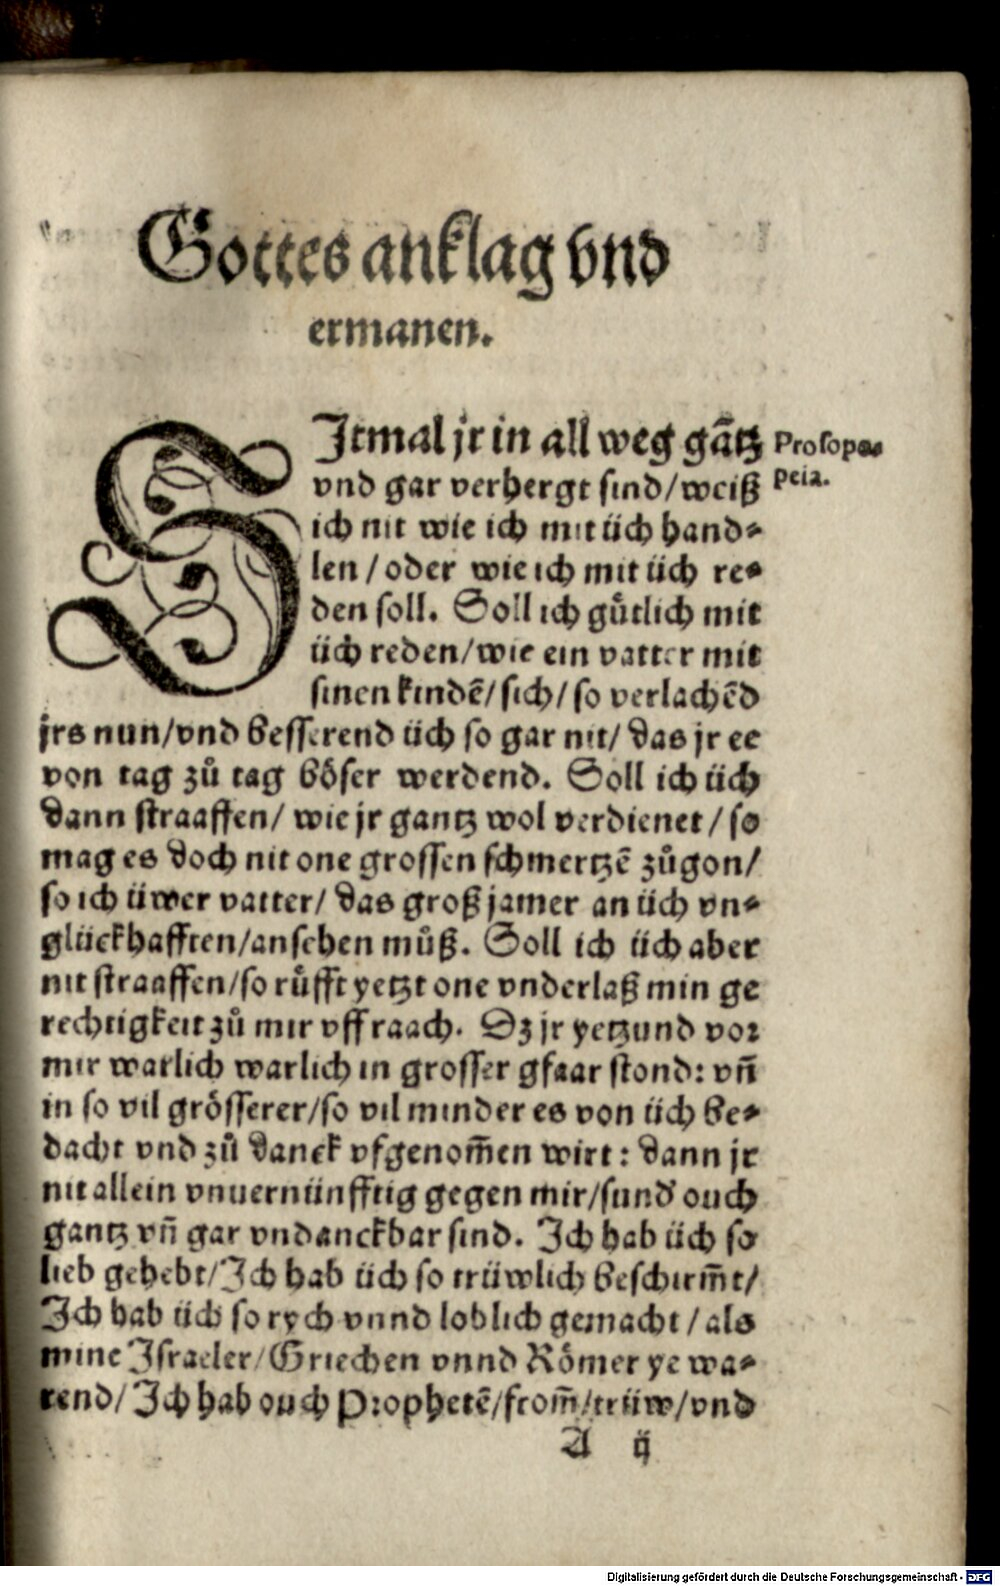 Gottes anklag vnd
ermanen.
SItmal jr in all weg gātz
vnd gar verhergt sind/weiß
ich nit wie ich mit üch hand⸗
len/oder wie ich mit üch re⸗
den soll. Soll ich guͤtlich mit
üch reden/wie ein vatter mit
sinen kindē/sich/so verlachēd
jrs nun/vnd besserend üch so gar nit/das jr ee
von tag zuͦ tag böser werdend. Soll ich üch
dann straaffen/wie jr gantz wol verdienet/so
mag es doch nit one grossen schmertzē zuͦgon/
so ich üwer vatter/das groß jamer an üch vn⸗
glückhafften/ansehen muͦß. Soll ich üch aber
nit straaffen/so ruͤfft yetzt one vnderlaß min ge
rechtigkeit zuͦ mir vff raach. Dz jr yetzund vor
mir warlich warlich in grosser gfaar stond: vñ
in so vil grösserer/so vil minder es von üch be⸗
dacht vnd zuͦ danck vfgenom̄en wirt: dann jr
nit allein vnuernünfftig gegen mir/sund' ouch
gantz vñ gar vndanckbar sind. Ich hab üch so
lieb gehebt/Ich hab üch so trüwlich beschirm̄t/
Ich hab üch so rych vnnd loblich gemacht/als
mine Israeler/Griechen vnnd Römer ye wa⸗
rend/Ich hab ouch Prophetē/from̄/trüw/vnd
A ij
Prosopo⸗
peia.
Digitalisierung gefördert durch die Deutsche Forschungsgemeinschaft - DFG